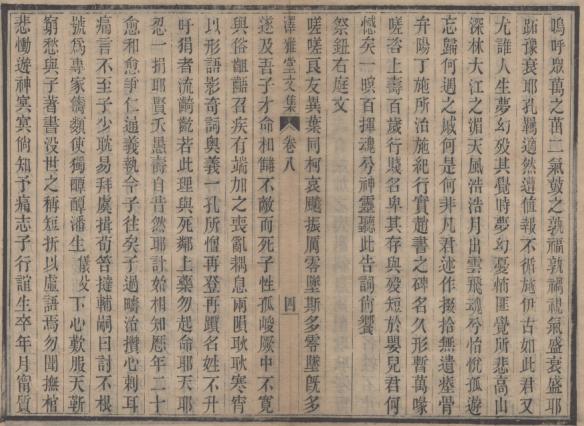 嗚呼眾萬之茁二氣鼓之孰福孰禍視氣盛衰盛耶
跖豫衰耶孔羈適然遭値報不循施伊古如此君又
尤誰人生夢幻歿其覺時夢幻憂悄匪覺所悲高山
深林大江之湄天風浩浩月出雲飛魂兮怡悅孤遊
忘歸何遇之戚何是何非凡君述作掇拾無遺塟骨
弁陽丁施所治施紀行實趙書之碑名久形暫萬喙
嗟咨上壽百歲行賤名卑其存與殁短於嬰兒君何
憾矣一暝百揮魂兮神靈聽此告詞尙饗
祭鈕右庭文
嗟嗟良友異葉同柯哀飇振厲零墜斯多零墜旣多
澤雅堂文集 卷八 四
遂及吾子才命相讎不敵而死子性孤峻厥中不寬
與俗齟齬召疾有端加之喪亂耦息兩隕耿耿寒宵
以形語影奇詞奧義一孔所憎再登再躓名姓不升
吁損者流齮齕若此理與死鄰上藥勿起命耶天耶
忍一捐耶賢夭愚壽自昔然耶計始相知歷年二十
愈和愈爭仁逼義執令子往矣子過疇治攢心刺耳
痛言不至子少耽易拜虞揖荀筮撻輔嗣曰討不根
號爲專家儔類使獨醰醰潘生儀皮下心歎服天斲
窮愁與子著書沒世之稱短折以虛語焉勿聞撫棺
悲慟遊神㝠㝠倘知予痛志子行誼生卒年月甯質